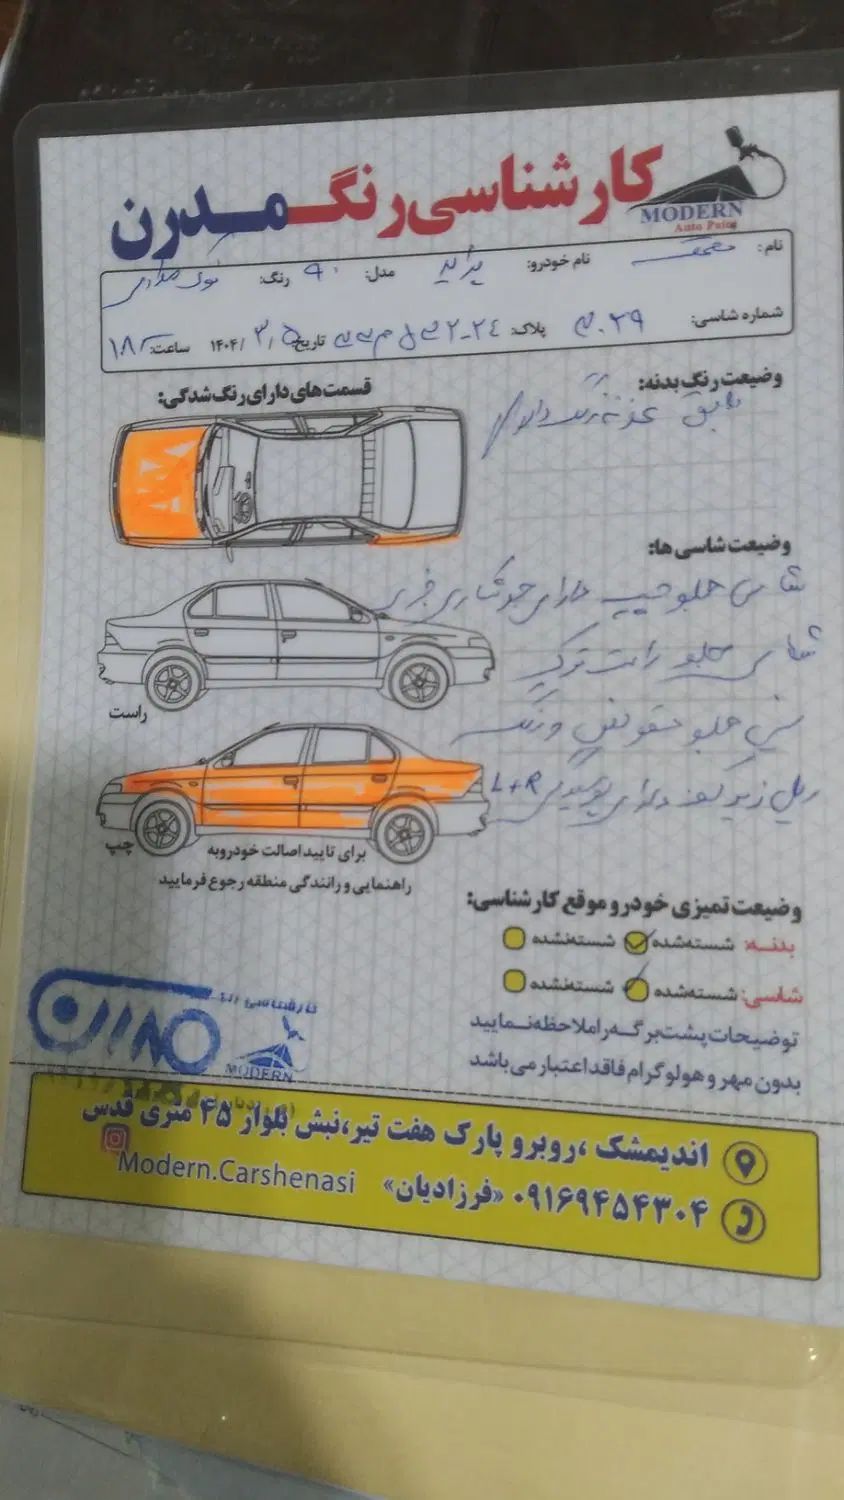 کارشناسی رنگ مدرن
MODERN
Auto Paint
نام:
نام خودرو: پراید
مدل: ۹۰
رنگ: نوک مدادی
شماره شاسی:
پلاک:
تاریخ: ۱۴۰۴/۳/۵
ساعت: ۱۸
وضعیت رنگ بدنه:
طبق نمونه رنگ دارد
قسمت‌های دارای رنگ‌شدگی:
وضعیت شاسی ها:
شاسی جلو چپ دارای جوشکاری فنری
شاسی جلو راست ترک
سینی جلو تعویض و رنگ
دارای پوسیدگی L+R
راست
چپ
برای تایید اصالت خودرو به
راهنمایی و رانندگی منطقه رجوع فرمایید
وضعیت تمیزی خودرو موقع کارشناسی:
بدنه: شسته‌شده شسته‌نشده
شاسی: شسته‌شده شسته‌نشده
توضیحات پشت برگه را ملاحظه نمایید
بدون مهر و هولوگرام فاقد اعتبار می باشد
کارشناسی رنگ
مدرن
MODERN
اندیمشک ،روبرو پارک هفت تیر،نبش بلوار ۴۵ متری قدس
۰۹۱۶۹۴۵۴۳۰۴ «فرزادیان»
Modern.Carshenasi